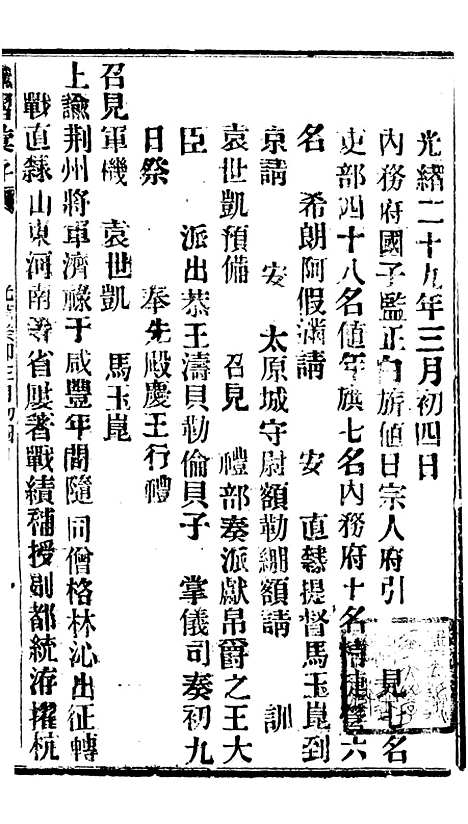 光緒二十九年三月初四日
內務府國子監正白旂值日宗人府引 見七名
吏部四十八名值年旗七名內務府十名 六
名 希朗阿假滿請 安 直隸提督馬玉崑到
京請 安 太原城守尉額勒綳額請 訓
袁世凱預備 召見 禮部奏派獻帛爵之王大
臣 派出恭王濤貝勒倫貝子 掌儀司奏初九
日祭 奉先殿慶王行禮
召見軍機 袁世凱 馬玉崑
上諭荆州將軍濟祿于咸豐年間隨同僧格林沁出征轉
戰直隸山東河南等省屢著戰績補授副都統洊擢杭